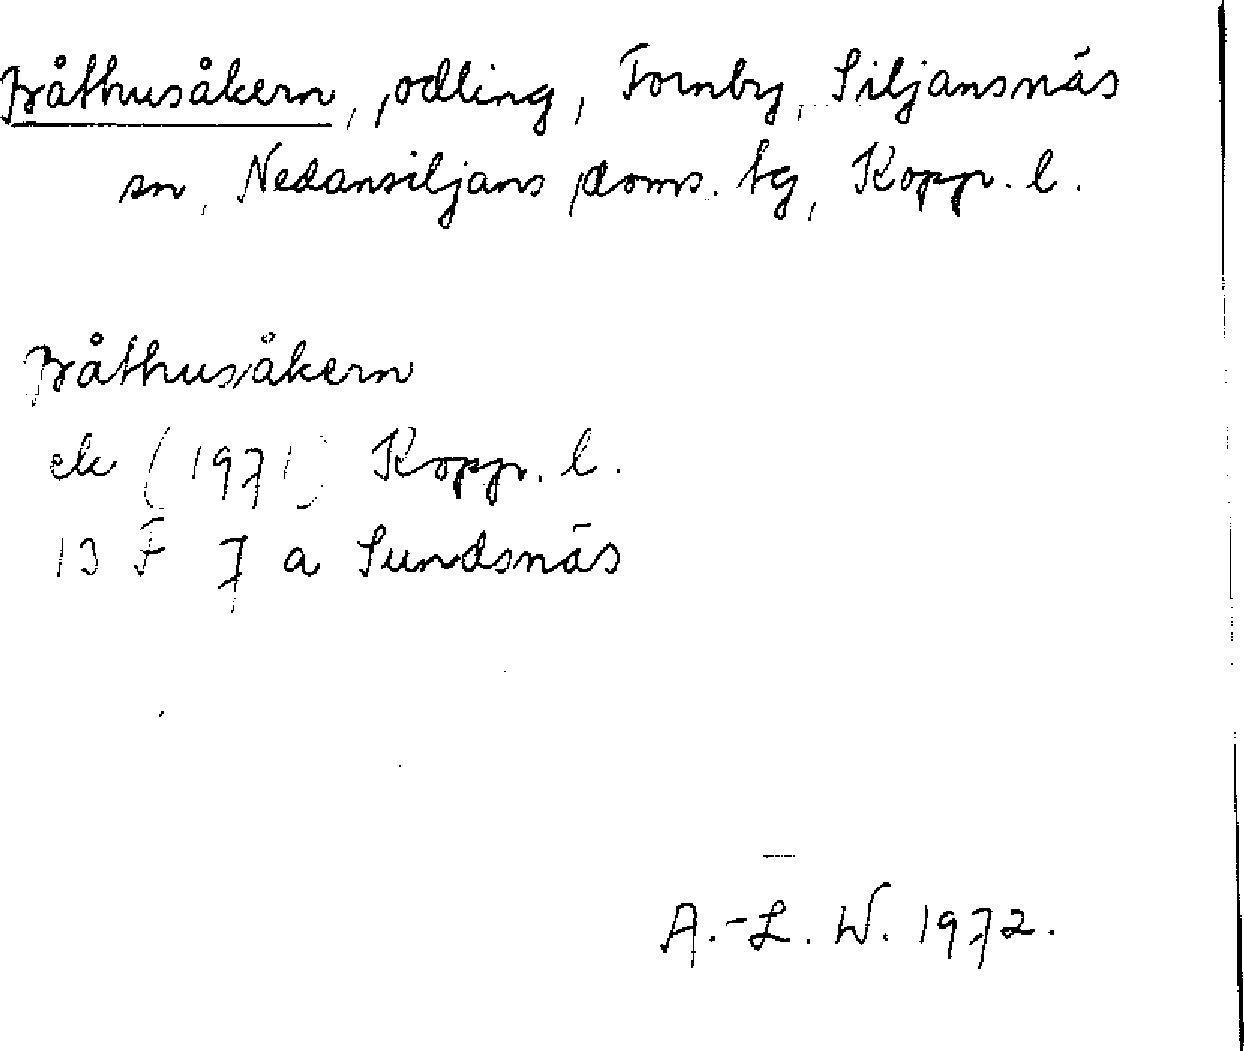 Båthusåkern, odling, Fornby, Siljansnäs
sn, Nedansiljans doms. tg, Kopp. l.
Båthusåkern
ek (1971) Kopp. l.
13 F 7 a Sundsnäs
A.-L. W. 1972.